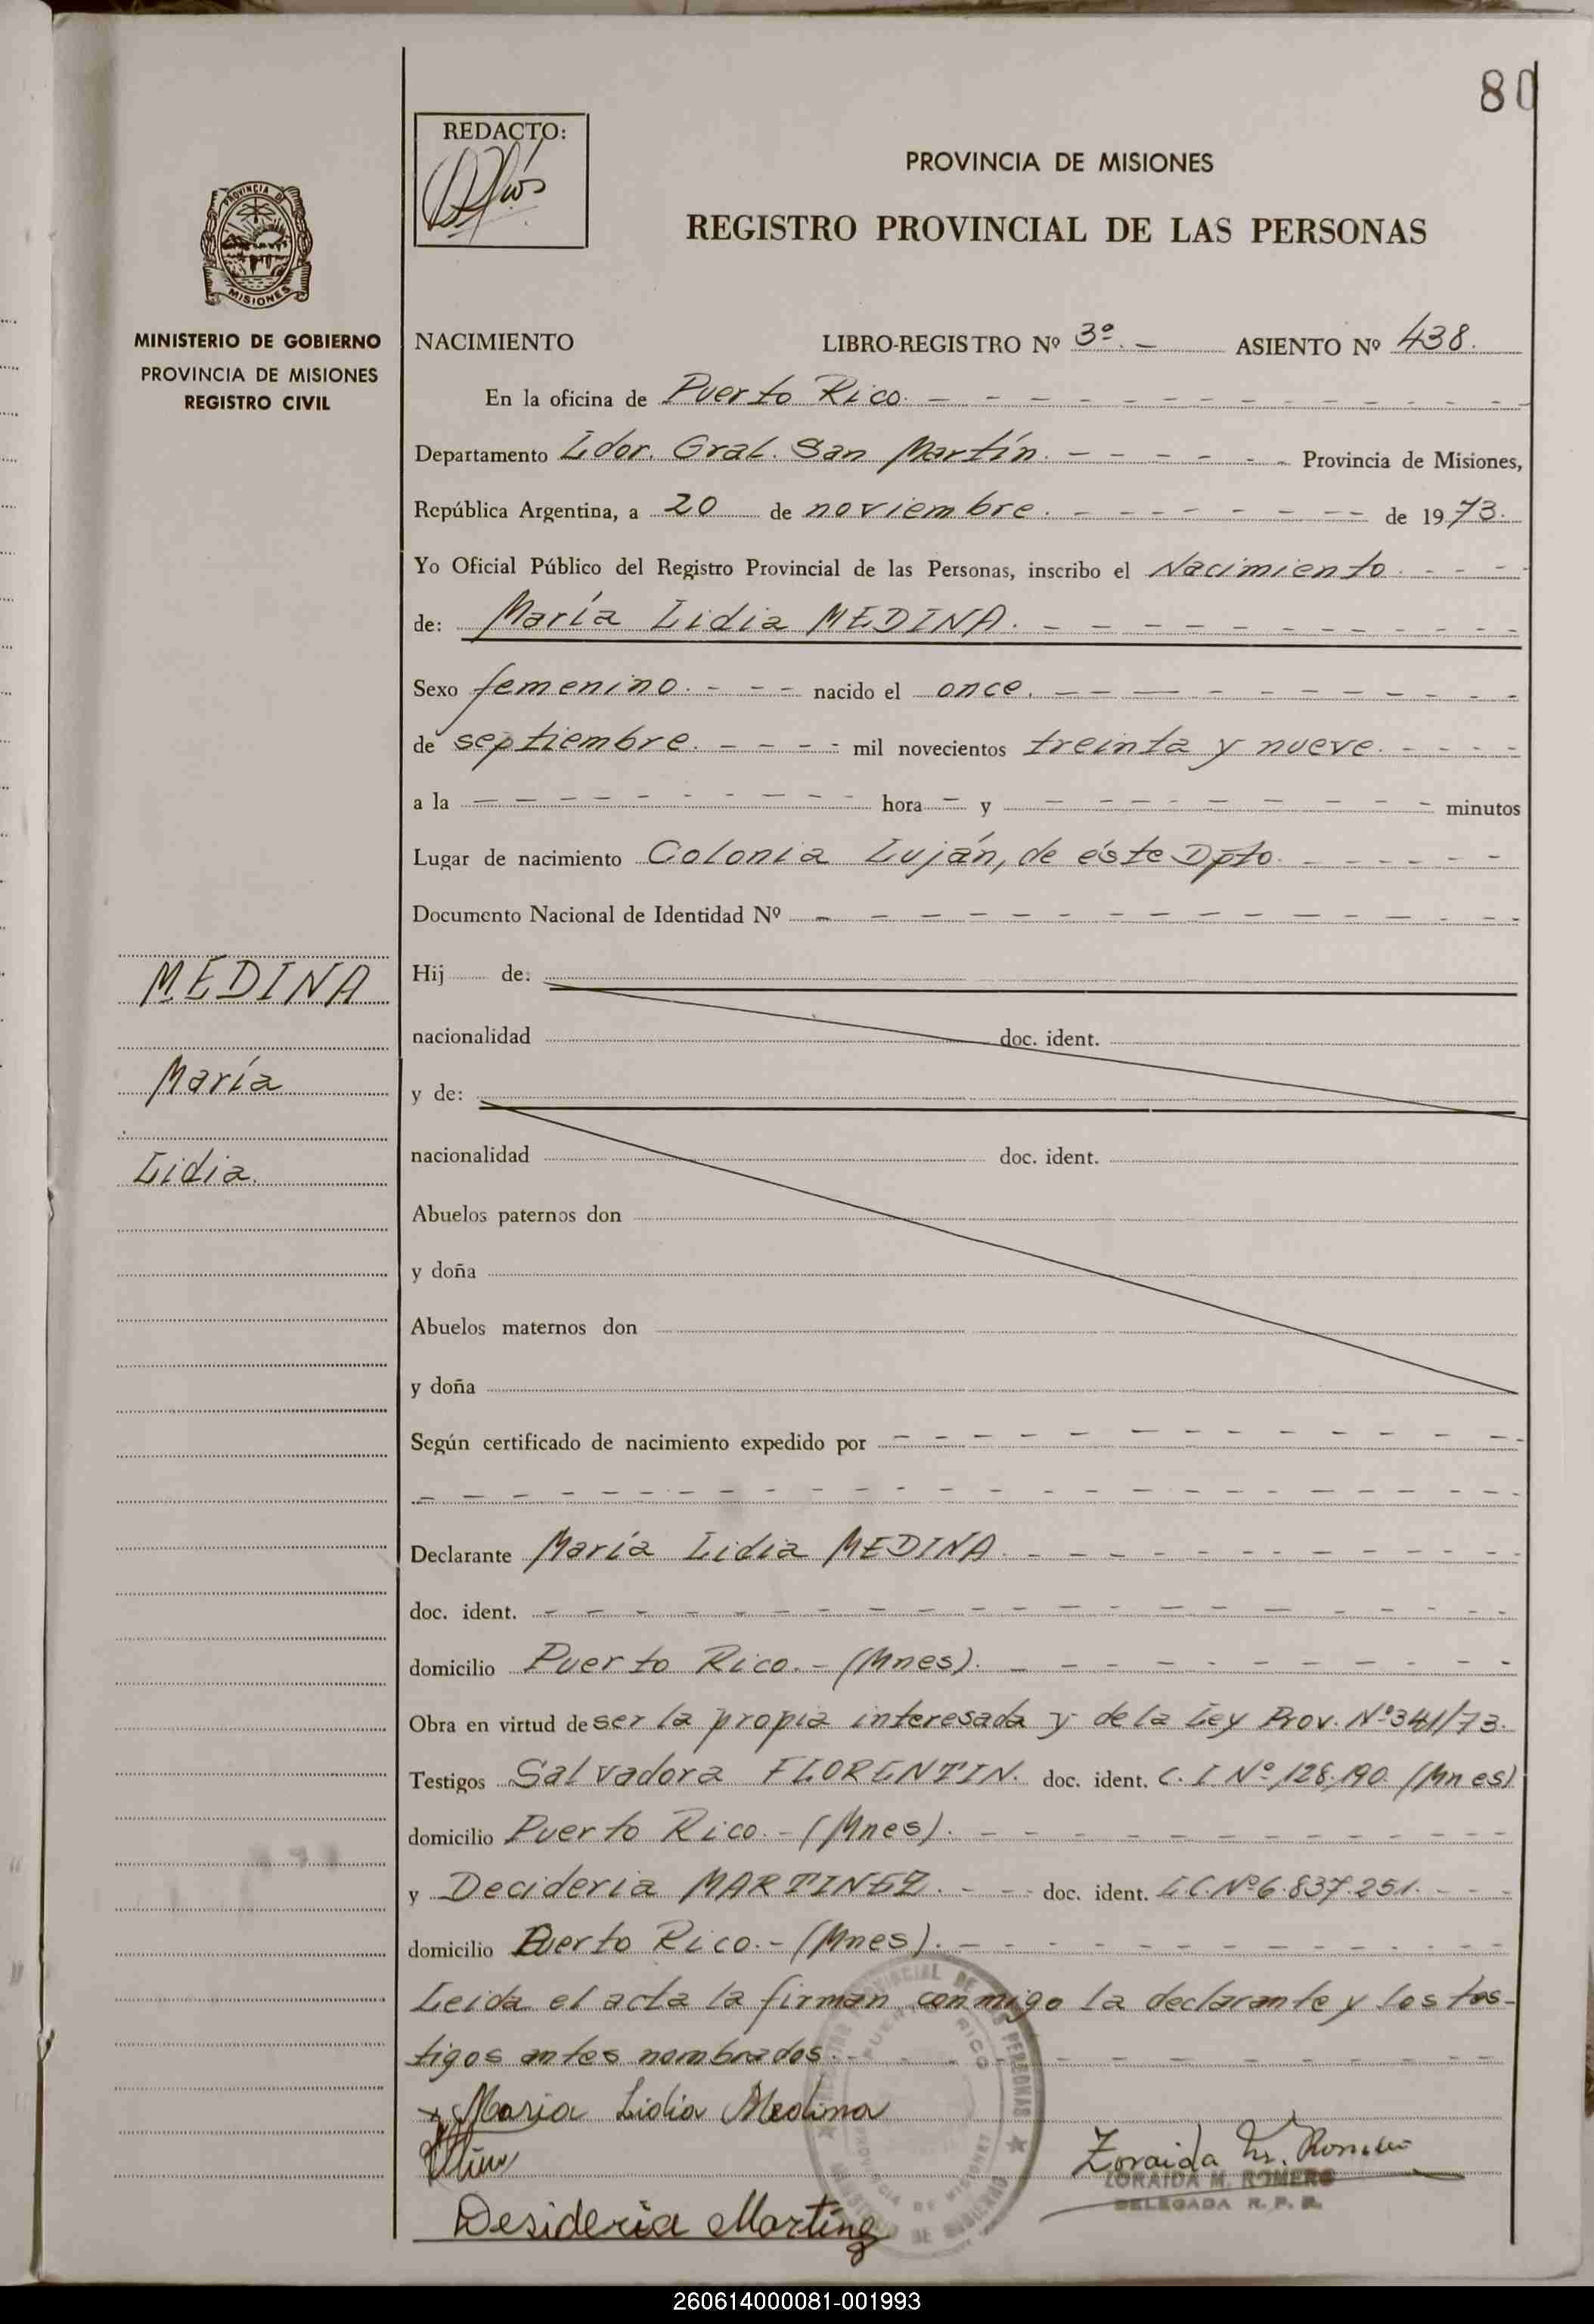 80
REDACTO:
PROVINCIA DE MISIONES
REGISTRO PROVINCIAL DE LAS PERSONAS
PROVINCIA DE
MISIONES
MINISTERIO DE GOBIERNO
PROVINCIA DE MISIONES
REGISTRO CIVIL
NACIMIENTO LIBRO-REGISTRO Nº 3º. - ASIENTO Nº 438.
En la oficina de Puerto Rico.
Departamento Ldor. Gral. San Martín. Provincia de Misiones,
República Argentina, a 20 de noviembre. de 1973.
Yo Oficial Público del Registro Provincial de las Personas, inscribo el Nacimiento.
de: María Lidia MEDINA.
Sexo femenino. nacido el once.
de septiembre. mil novecientos treinta y nueve.
a la hora y minutos
Lugar de nacimiento Colonia Luján, de éste Dpto.
Documento Nacional de Identidad Nº
MEDINA
María
Lidia.
Hij de:
nacionalidad doc. ident.
y de:
nacionalidad doc. ident.
Abuelos paternos don
y doña
Abuelos maternos don
y doña
Según certificado de nacimiento expedido por
Declarante María Lidia MEDINA.
doc. ident.
domicilio Puerto Rico. - (Mnes).
Obra en virtud de ser la propia interesada y de la Ley Prov. Nº 341/73.
Testigos Salvadora FLORENTIN. doc. ident. C. I. Nº 128.190. (Mnes)
domicilio Puerto Rico. - (Mnes).
y Decideria MARTINEZ. doc. ident. L.C. Nº 6.837.251.
domicilio Puerto Rico. - (Mnes).
Leida el acta la firman conmigo la declarante y los tes-
tigos antes nombrados.
x Maria Lidia Medina
Zoraida M. Romero
ZORAIDA M. ROMERO
DELEGADA R. P. P.
Desideria Martinez
PUERTO RICO
PROVINCIA DE MISIONES
MINISTERIO DE GOBIERNO
260614000081-001993